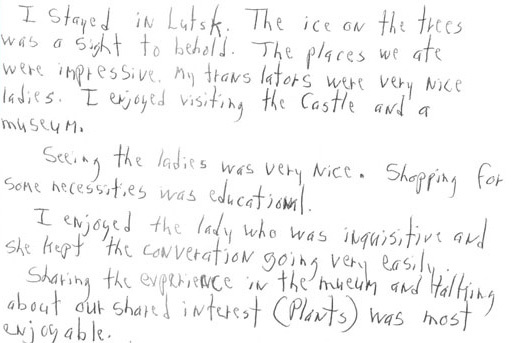 I Stayed in Lutsk. The ice on the trees
was a sight to behold. The places we ate
were impressive. My translators were very nice
ladies. I enjoyed visiting the Castle and a
museum.
Seeing the ladies was very nice. Shopping for
some necessities was educational.
I enjoyed the lady who was inquisitive and
she kept the converation going very easily.
Sharing the experience in the mueum and talking
about our shared interest (Plants) was most
enjoyable.